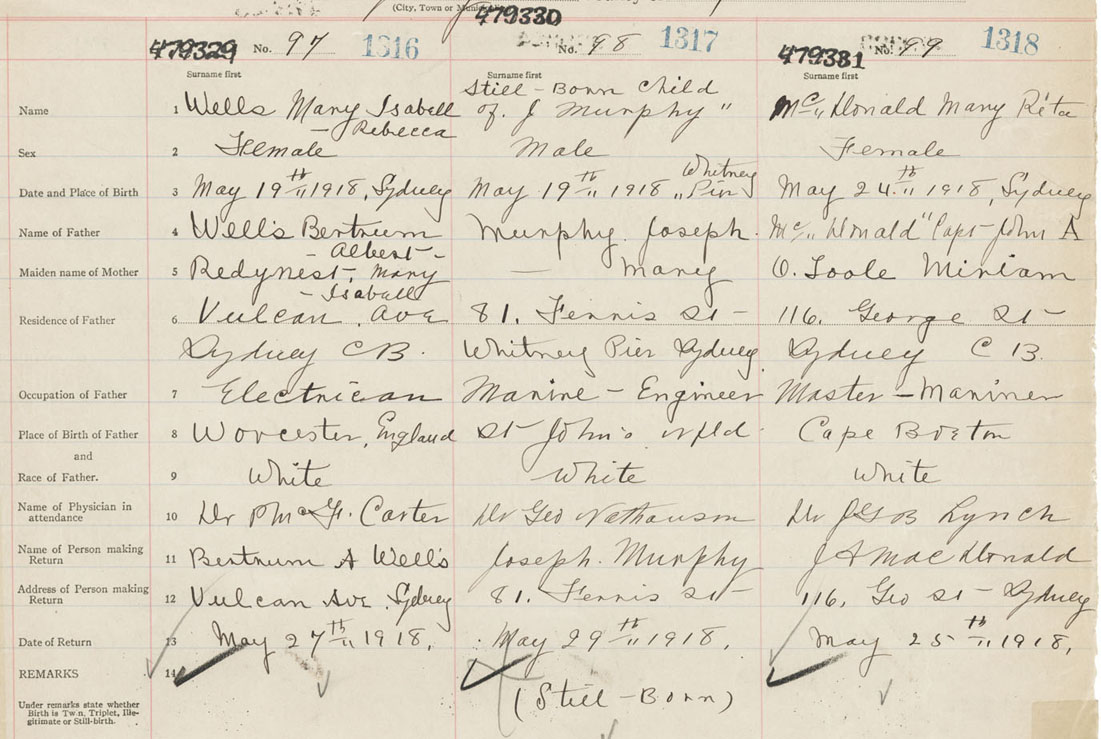 (City, Town or Municipality)
479329 No. 97 1316
479330 No. 98 1317
479331 No. 99 1318
Surname first Surname first Surname first
Name 1 Wells Mary Isabell
- Rebecca
Still-Born Child
of. J Murphy"
Mc" Donald Mary Rita
Sex 2 Female Male Female
Date and Place of Birth 3 May 19th" 1918, Sydney May 19th" 1918 "Whitney Pier May 24.th" 1918, Sydney
Name of Father 4 Wells Bertrum
- Albert-
Murphy. Joseph. Mc" Donald" Capt-John A
Maiden name of Mother 5 Mary
- Isabell
— Mary O. Toole Miriam
Residence of Father 6 Vulcan. Ave 81. Ferris St- 116. George St-
Sydney C B. Whitney Pier Sydney. Sydney C B.
Occupation of Father 7 Electrican Marine-Engineer Master-Mariner
Place of Birth of Father 8 Worcester, England St John's Nfld. Cape Breton
and
Race of Father. 9 White White White
Name of Physician in
attendance 10 Dr Carter Dr Geo Dr Lynch
Name of Person making
Return 11 Bertrum A Well's Joseph. Murphy J A MacDonald
Address of Person making
Return 12 Vulcan Ave. Sydney 81. Ferris St- 116. Geo St- Sydney
Date of Return 13 May 27th" 1918. May 29th" 1918. May 25th" 1918.
REMARKS 14
(Still-Born)
Under remarks state whether
Birth is Twin, Triplet, Ille-
gitimate or Still-birth.